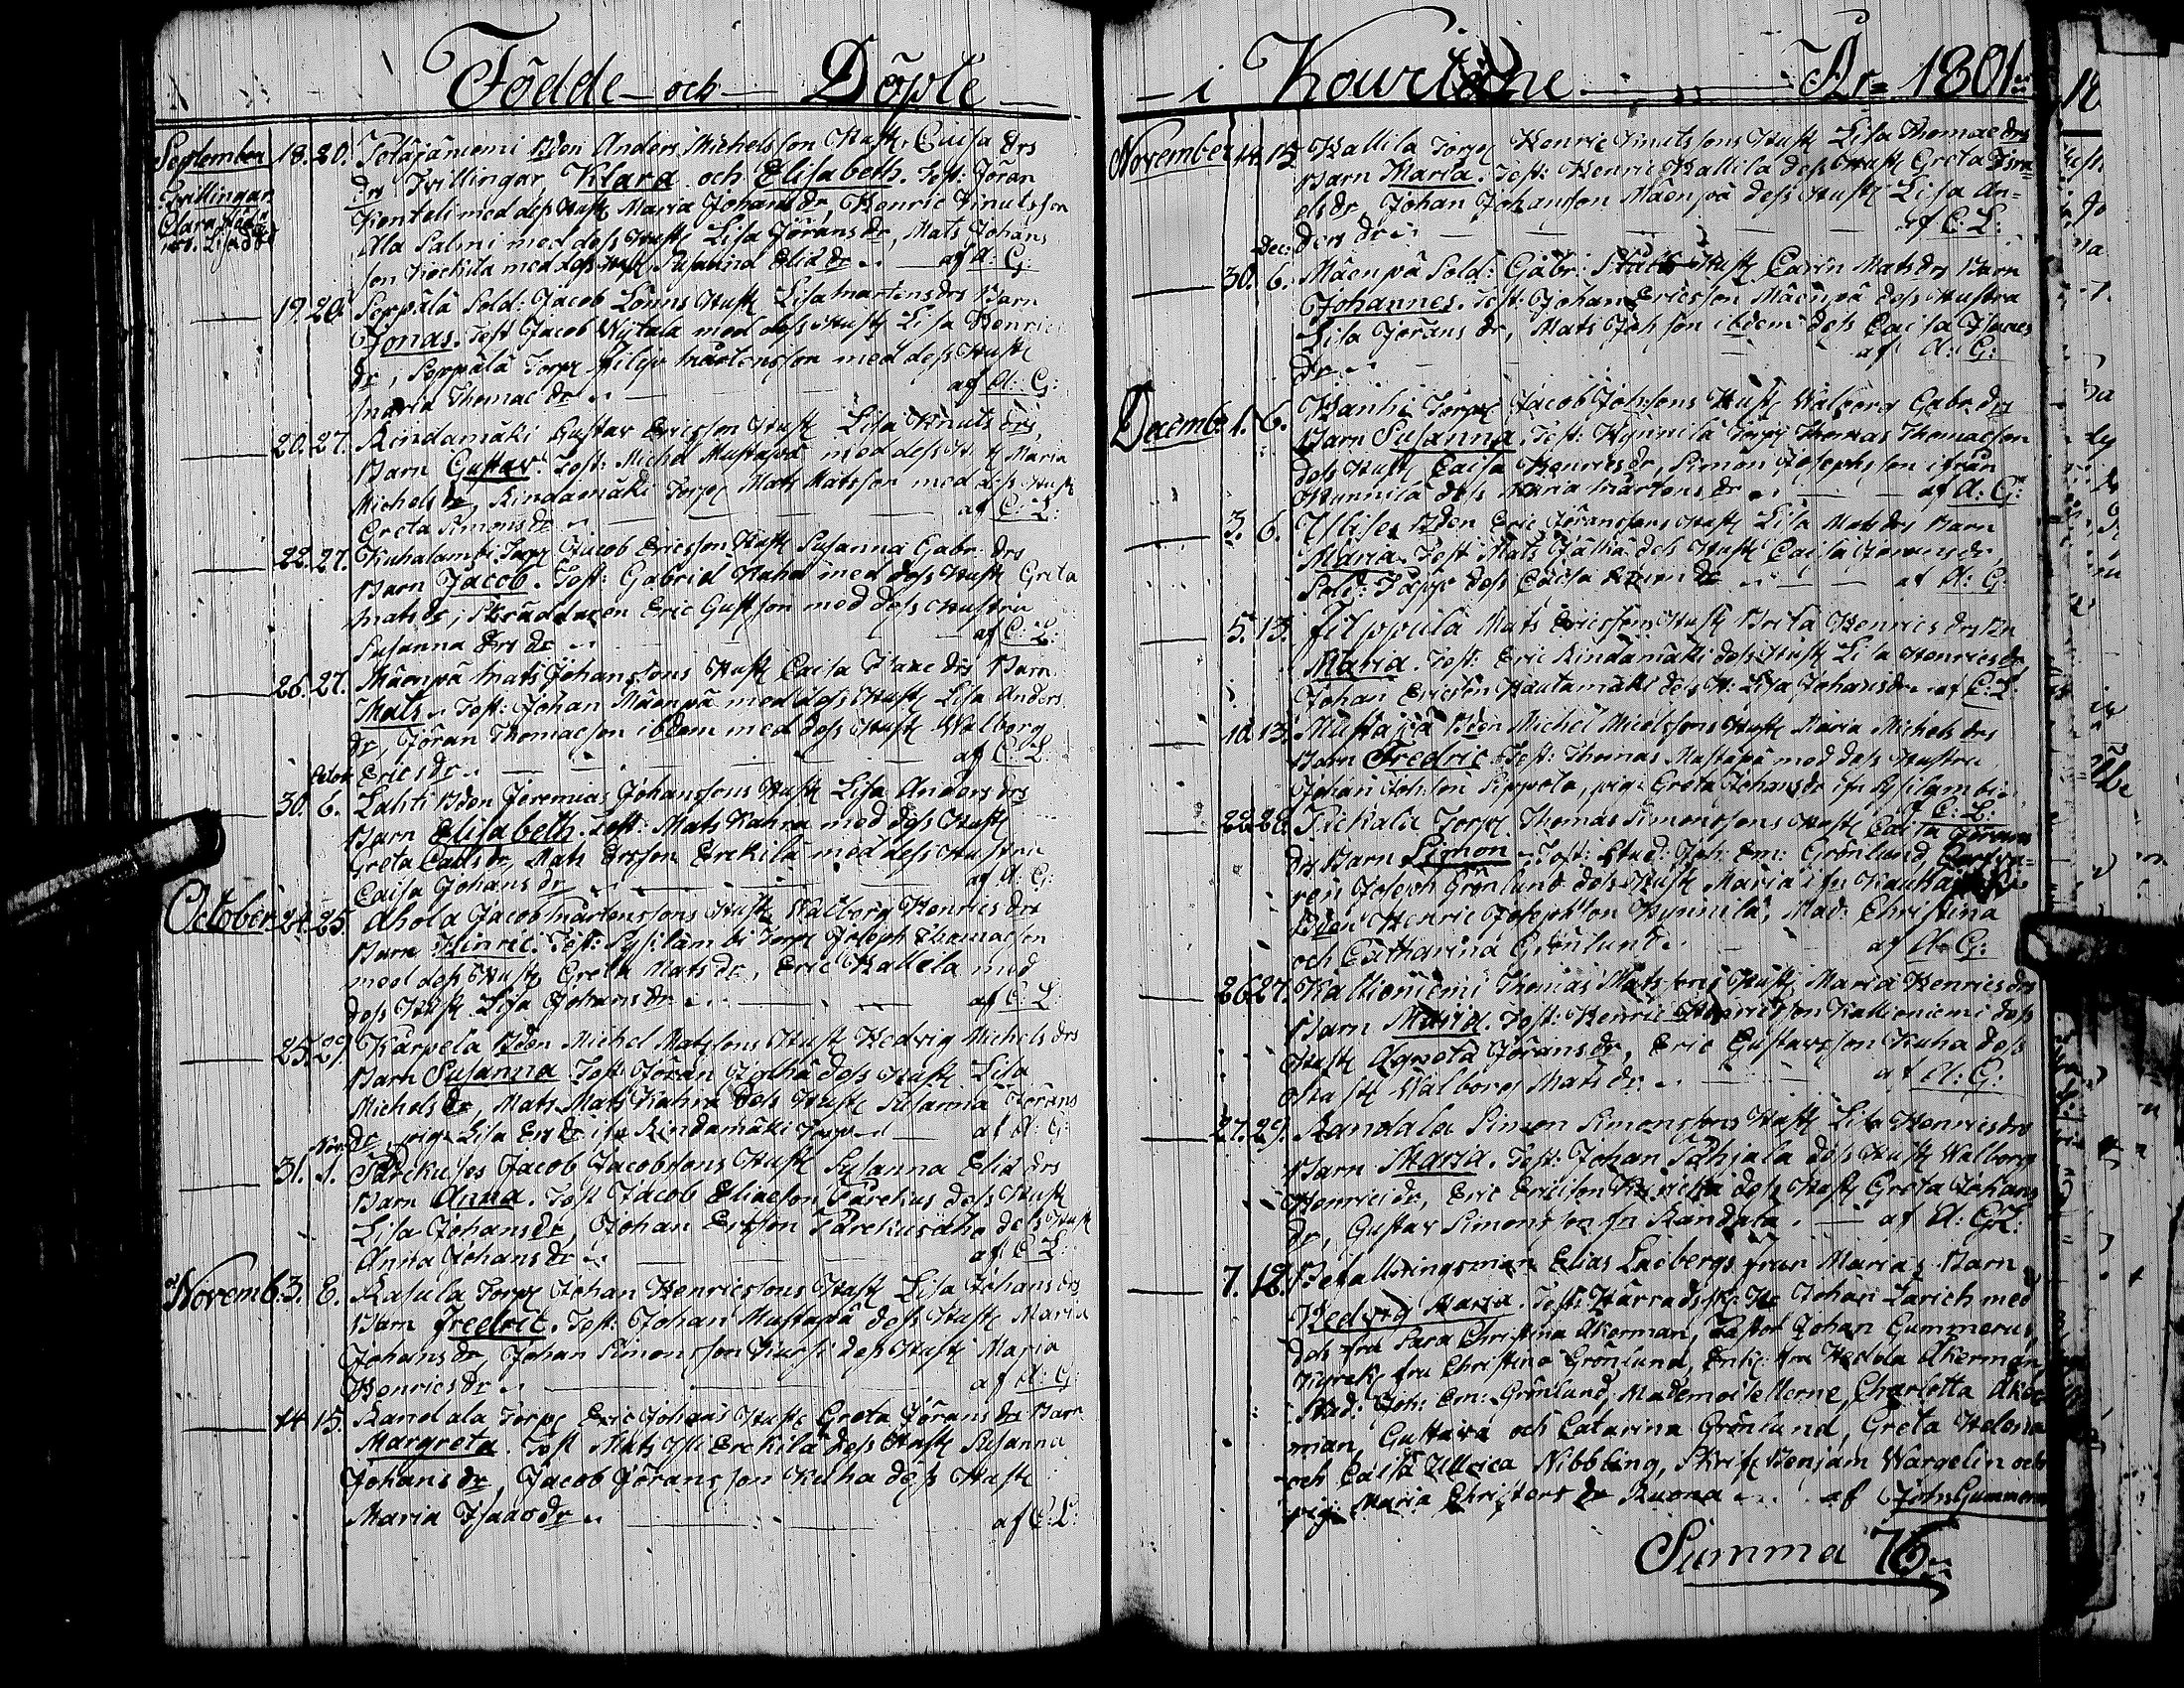 Födde och Döpte
September 18. 20. Bdn Anders Michelsson Hust. Caisa Ers
Tvillingar
dr Tvillingar, Klara och Elisabeth. Test: Jöran
Clara
med dess Hust Maria Johans dr, Henric Knutsson
Lisa död
Ala Salmi med dess Hust Lisa Jörans dr, Mats Johans
son med dess Hust Susanna Elia dr af A: G:
19. 20. Seppälä Sold: Jacob Lönns Hust Lisa Mårtens drs Barn
Jonas. Test Jacob med dess Hust Lisa Henrics
dr, Seppälä Torp Filip Mårtensson med dess Hust
Maria Thomae dr af A: G:
20. 27. Rindamäki Gustav Ericsson Hust Lisa Knuts drs
Barn Gustav. Test: Michel Mustapä med dess H. Maria
Michels dr, Rindamäki Torp Mats Matsson med dess Hust
Greta Simons dr af C: L:
22. 27. Kuhalambi Torp Jacob Ericsson Hust Susanna Gabr. drs
Barn Jacob. Test: Gabriel Kuha med dess Hust Greta
Mats dr, Skräddaren Eric Gustsson med dess Hustru
Susanna Ers dr af C: L:
26. 27. Mäenpä Mats Johanssons Hust Caisa Isaac drs Barn
Mats. Test: Johan Mäenpä med dess Hust Lisa Anders
dr, Jöran Thomaeson ibdem med dess Hust Walborg
Erics dr af C: L:
Octob 30. 6. Lahti Bdn Jeremias Johanssons Hust Lisa Anders drs
Barn Elisabeth. Test: Mats Kahra med dess Hust
Greta Carls dr, Mats Ersson Erckilä med dess Hustru
Caisa Johans dr af A: G:
October 24. 25. Ahola Jacob Mårtenssons Hust Walborg Henrics drs
Barn Hinric. Test: Sysilambi Torp Joseph Thomaeson
med dess Hust Greta Mats dr, Eric Kallela med
dess Hust Lisa Johans dr af C: L:
25. 29. Karpela Bdn Michel Matssons Hust Hedvig Michels drs
Barn Susanna. Test Jöran Jylhä dess Hust Lisa
Michels dr, Mats Mats Kahra dess Hust Susanna Jörans
Nov: dr, pig. Lisa Ers dr ifr Rindamäki Torp af A: G:
31. 1. Parckujos Jacob Jacobssons Hust Susanna Elia drs
Barn Anna. Test Jacob Eliaeson Parckus dess Hust
Lisa Johans dr, Johan Ersson Parckusaho dess Hust
Anna Johans dr af C: L:
Novemb: 3. 8. Rasula Torp Johan Henricssons Hust Lisa Johans drs
Barn Fredric. Test: Johan Mustapä dess Hust Maria
Johans dr, Johan Simonsson Kurssi dess Hust Maria
Henrics dr af A: G:
14. 15. Randala Torp Eric Johans Hust Greta Jörans drs Barn
Margreta. Test Mats Yli Erckilä dess Hust Susanna
Johans dr, Jacob Jöransson Kuha dess Hust
Maria Isaacs dr af C: L:
i Kourtane År 1801
November 14. 15. Kallila Torp Henric Knutssons Hust Lisa Thomae drs
Barn Maria. Test: Henric Kallila dess Hust Greta Isra=
els dr, Johan Johansson Mäenpä dess Hust Lisa An=
ders dr af C: L:
Dec: 30. 6. Mäenpä Sold: Gabr: Hust Carin Mats drs Barn
Johannes. Test: Johan Ericsson Mäenpä dess Hustru
Lisa Jörans dr, Mats Johsson ibdem dess Caisa Isaacs
dr af A: G:
Decemb: 1. 6. Wanhi Torp Jacob Johssons Hust Walborg Gabr. drs
Barn Susanna. Test: Kynnilä Torp Thomas Thomaeson
dess Hust Caisa Henrics dr, Simon Josephsson ifrån
Kunnila dess Maria Mårtens dr af A: G:
3. 6. Ylijos Bdn Eric Jöranssons Hust Lisa Mats drs Barn
Maria. Test Mats Jylhä dess Hust Caisa
Sold: dess Caisa dr af A: G:
5. 13. Filppula Mats Ericssons Hust Brita Henrics drs Bn
Maria. Test: Eric Rindamäki dess Hust Lisa Henrics dr
Johan Ericsson Hautamäki dess H: Lisa Johans dr af C: L:
10. 13. Mustapä Bdn Michel Michelssons Hust Maria Michels drs
Barn Fredric. Test: Thomas Mustapä med dess Hustru
Johan Johsson Seppälä, pig: Greta Johans dr ifr Sysilambi
af C: L:
22. 26. Pickala Torp Thomas Simonssons Hust Caisa Jörans
drs Barn Simon. Test: Stud: Joh: Em: Grönlund,
ren Joseph Grönlund dess Hust Maria ifr
Bdn Henric Josephsson Kynnilä, Mad: Christina
och Catharina Grönlund af A: G:
26. 27. Kallioniemi Thomas Matssons Hust Maria Henrics drs
Barn Maria. Test: Henric Henricsson Kallioniemi dess
Hust Agneta Jörans dr, Eric Gustavsson Kuha dess
Hust Walborg Mats dr af A: G:
27. 29. Randala Simon Simonssons Hust Lisa Henrics drs
Barn Maria. Test: Johan Pohjala dess Hust Walborg
Henrics dr, Eric Ericsson dess Hust Greta Johans
dr, Gustav Simonsson fn Randala. af A: G:
7. 18. Befallningsman Elias Ladbergs frun Marias Barn
Hedvig Maria. Test: Häradsh: Johan Larich med
dess fru Sara Christina Åkerman, Pastor Johan Gummerus,
fru Christina Grönlund, Enk: fru Hedda Åkerman,
Stud: Joh: Em: Grönlund, Mademoisellerne Charlotta Åker
man, Gustava och Catarina Grönlund, Greta Helena
och Caisa Ullrica Nibbling, Skrif. Benjam Wargelin och
pig: Maria Christers dr Ruona af Joh: Gummerus
Summa 76